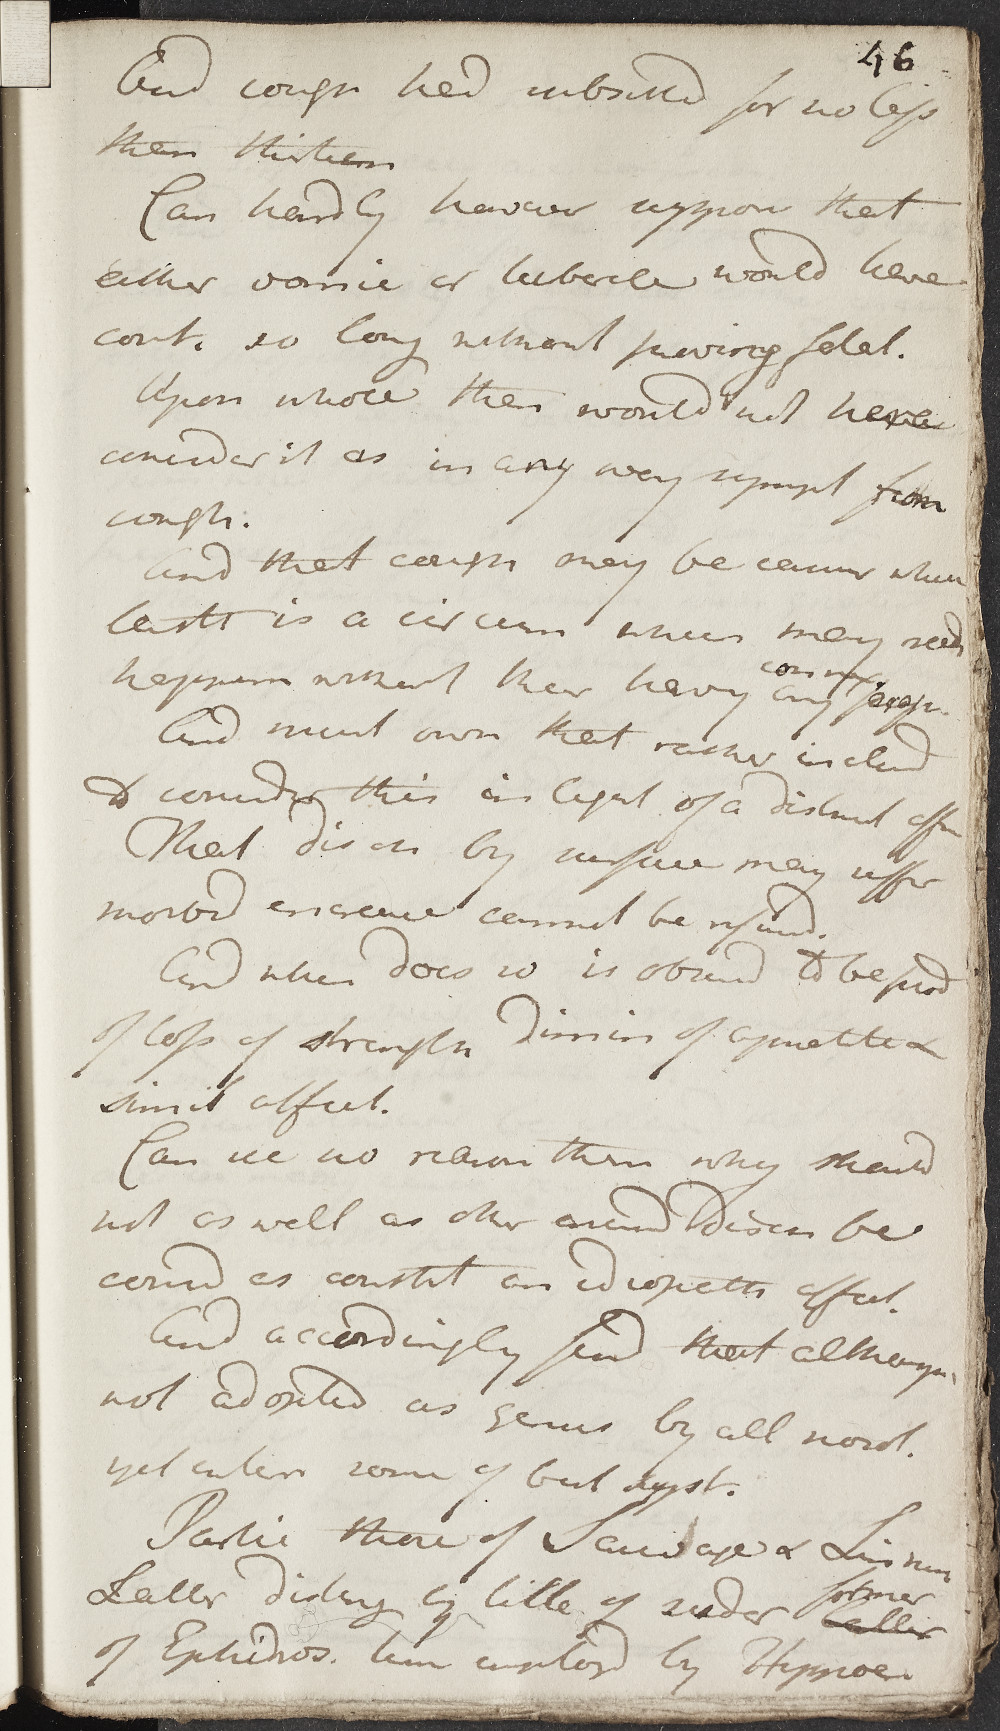 46
And cough had subsisted for no less
than thirteen
Can hardly however suppose that
either vomic or tubercle would have
cont. so long without proving fatal.
Upon whole then would not have
consider it as in any way sympt from
cough.
And that cough may be cause when
lasts is a circum when may
happen without their having any
connex.
And must own that rather inclind
to consider this in light of a distinct affn
That disch by surface may suffer
morbid increase cannot be refusd.
And when does so is obsend to be prod
of loss of strength Dimin of appetite &
simil affect.
Can see no reason then why should
not as well as other increasd disch be
consd as constit an idiopath affect.
And accordingly find that although
not adopted as genus by all nosol.
yet enters some of best syst.
Partic those of Sauvage & Linnæus
former
Latter disting by title of sudor latter
of Ephidros. term employd by Hippocr.